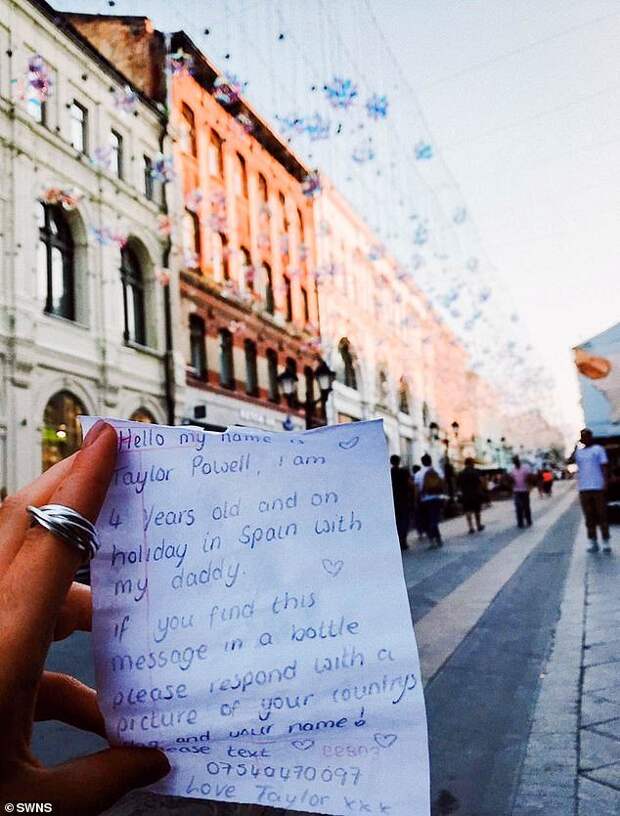 Hello my name is
Taylor Powell, i am
4 years old and on
holiday in Spain with
my daddy.
if you find this
message in a bottle
please respond with a
picture of your countrys
and your name!
please text
07540470097
Love Taylor xxx
© SWNS